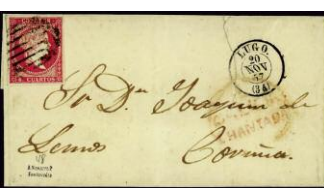 CORREOS
4 CUARTOS
LUGO.
20
NOV
57
(34)
Sr Dn Joaquin de
Lemos Coruña.
CHANTADA